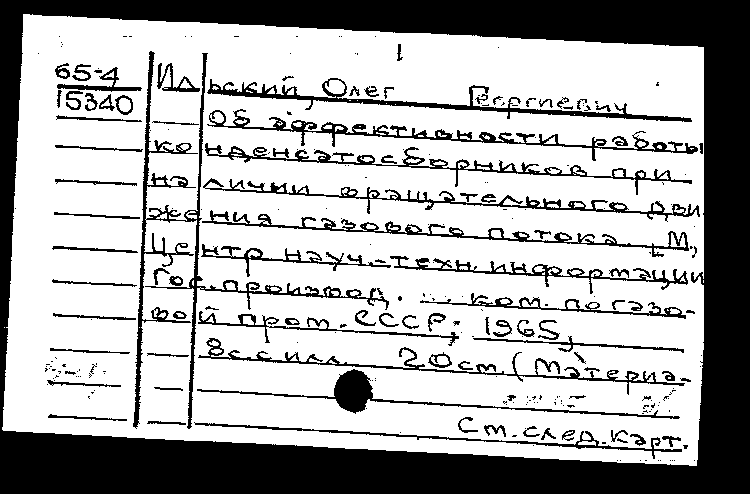 1
65-4 Ильский, Олег Георгиевич
15340
Об эффективности работы
конденсатосборников при
наличии вращательного дви-
жения газового потока. [М.,
Центр науч.-техн. информации
Гос. производ. ком. по газо-
вой пром. СССР, 1965,
8с. с илл. 20см. (Материа-
См. след. карт.